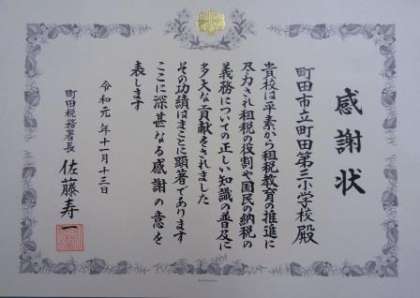 感謝状
町田市立町田第三小学校殿
貴校は平素から租税教育の推進に
尽力され租税の役割や国民の納税の
義務についての正しい知識の普及に
多大な貢献をされました
その功績はまことに顕著であります
ここに深甚なる感謝の意を
表します
令和元年十一月十三日
町田税務署長 佐藤寿一